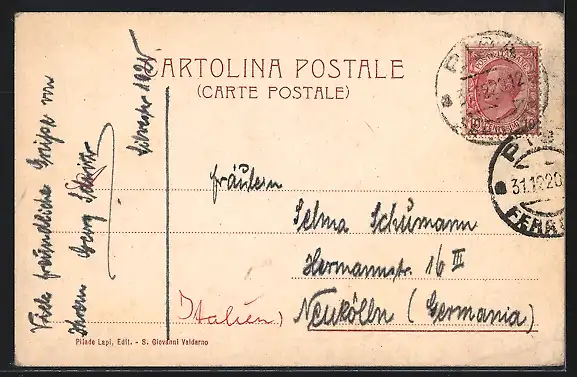 CARTOLINA POSTALE
(CARTE POSTALE)
Silvester 1921
Viele freundliche Grüße von
Ihrem Georg
Fräulein
Selma Schumann
Hermannstr. 16 III
Neukölln (Germania)
Italien)
Pilade Lapi, Edit. - S. Giovanni Valdarno
PISA
PISA
31.12.20
FERR